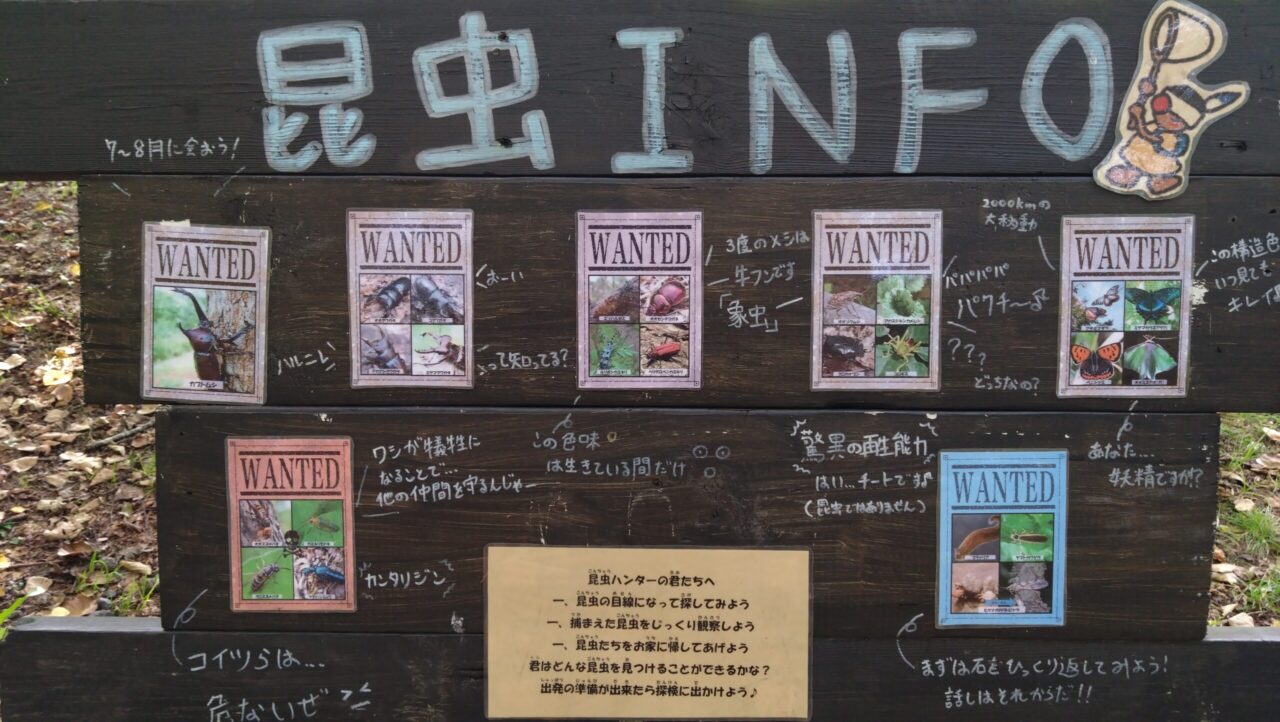 昆虫INFO
7〜8月に会おう！
WANTED
カブトムシ
ハルニレ！
WANTED
おーい
って知ってる？
WANTED
3度のメシは
牛フンです
「象虫」
この色味
は生きている間だけ
WANTED
パパパパ
パクチ〜♪
？？？
どっちなの？
2000kmの
大移動
WANTED
この構造色
いつ見ても
キレイ
あなた…
妖精ですか!?
WANTED
ワシが犠牲に
なることで…
他の仲間を守るんじゃー
カンタリジン
コイツらは…
危ないぜ
驚異の再生能力
はい…チートです
（昆虫ではありません）
WANTED
まずは石をひっくり返してみよう！
話しはそれからだ!!
昆虫ハンターの君たちへ
一、昆虫の目線になって探してみよう
一、捕まえた昆虫をじっくり観察しよう
一、昆虫たちをお家に帰してあげよう
君はどんな昆虫を見つけることができるかな？
出発の準備が出来たら探検に出かけよう♪